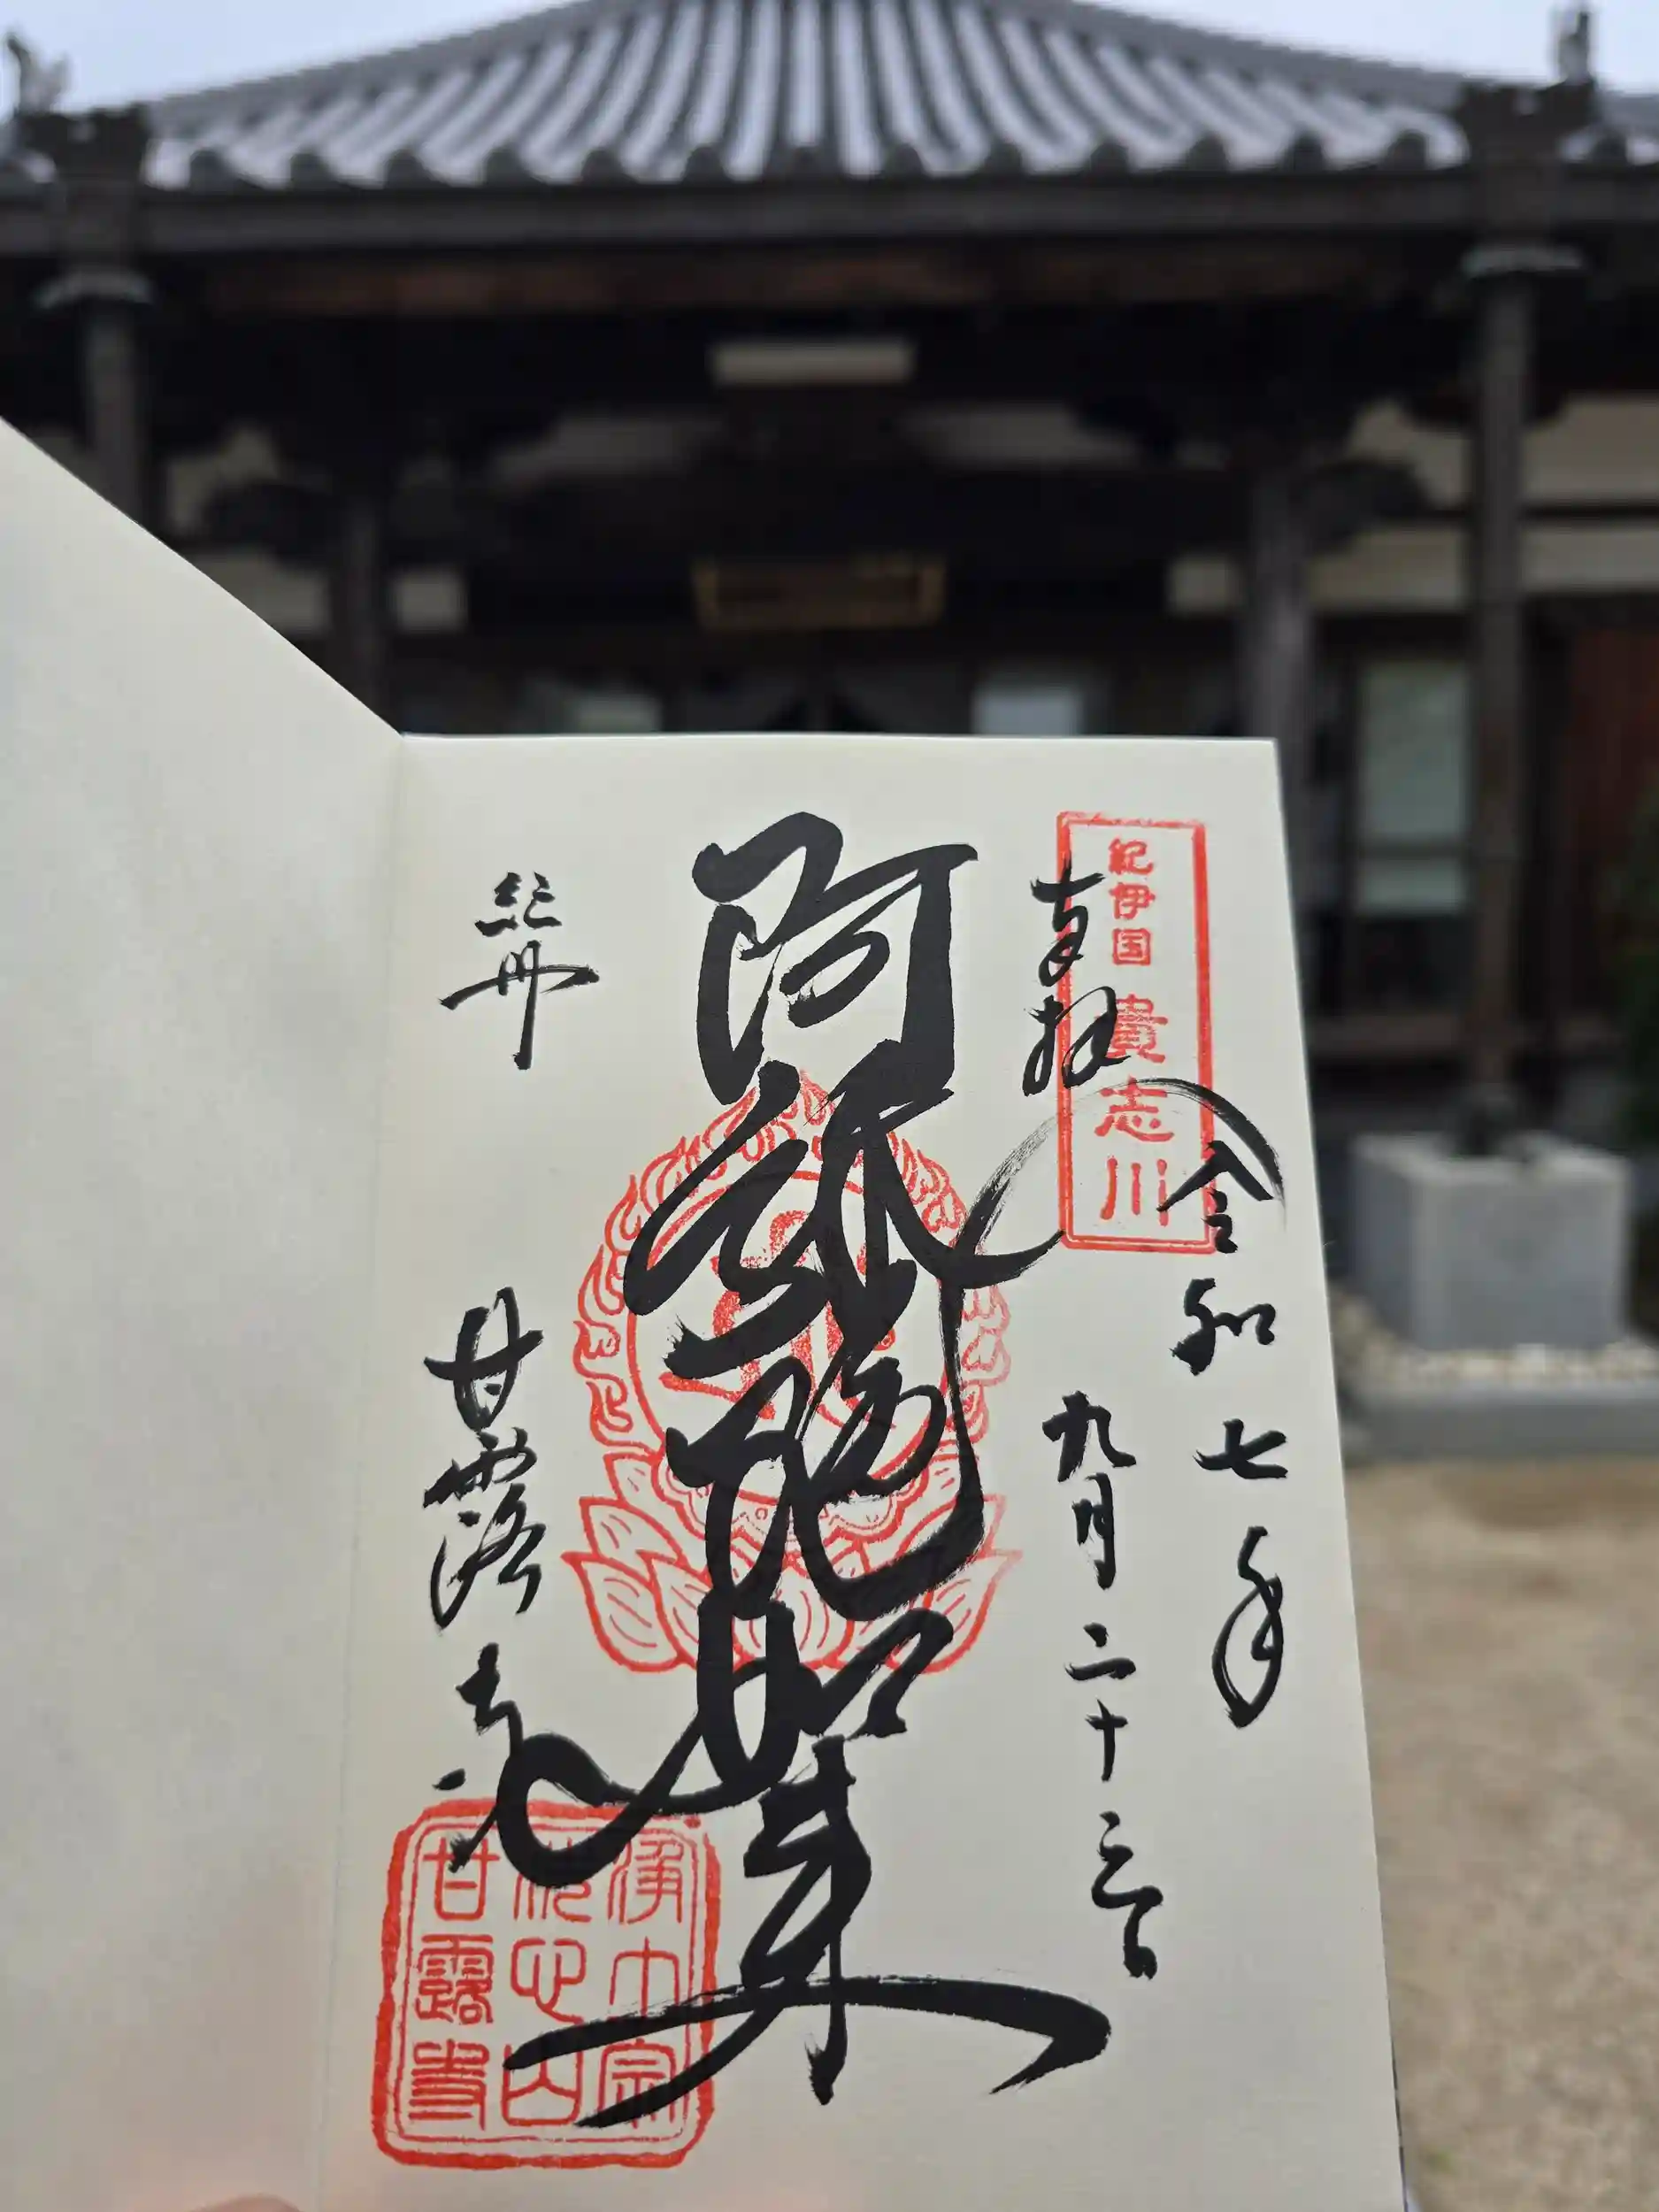 紀伊国 貴志川
奉拝
令和七年
九月二十三日
阿弥陀如来
紀州
甘露寺
浄土宗
遊心山
甘露寺